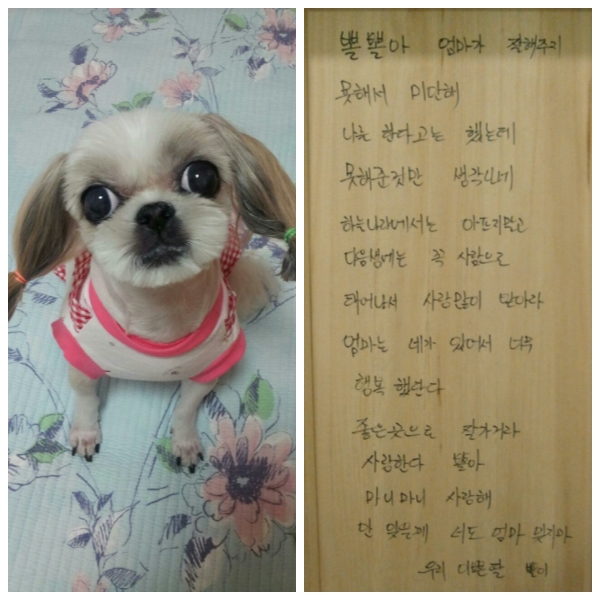 뽈뽈아 엄마가 잘해주지
못해서 미안해
나는 한다고는 했는데
못해준것만 생각나네
하늘나라에서는 아프지말고
다음생에는 꼭 사람으로
태어나서 사랑많이 받다라
엄마는 네가 있어서 너무
행복 했단다
좋은곳으로 잘가거라
사랑한다 뽈아
마니마니 사랑해
안 잊을게 너도 엄마 잊지마
우리 이쁜딸